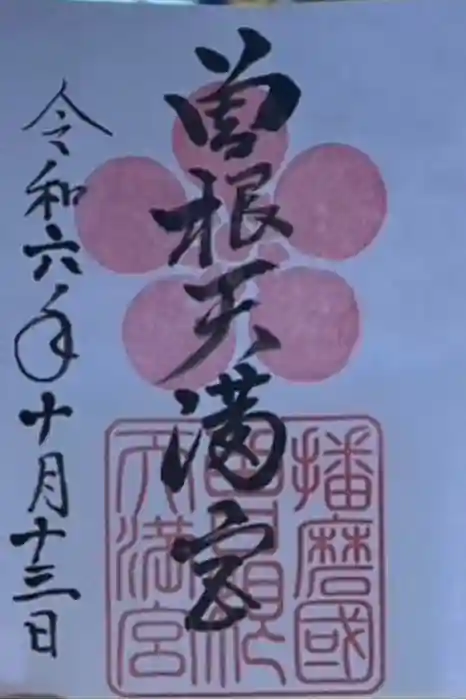 曽根天満宮
令和六年十月十三日
播磨國
曽根
天満宮